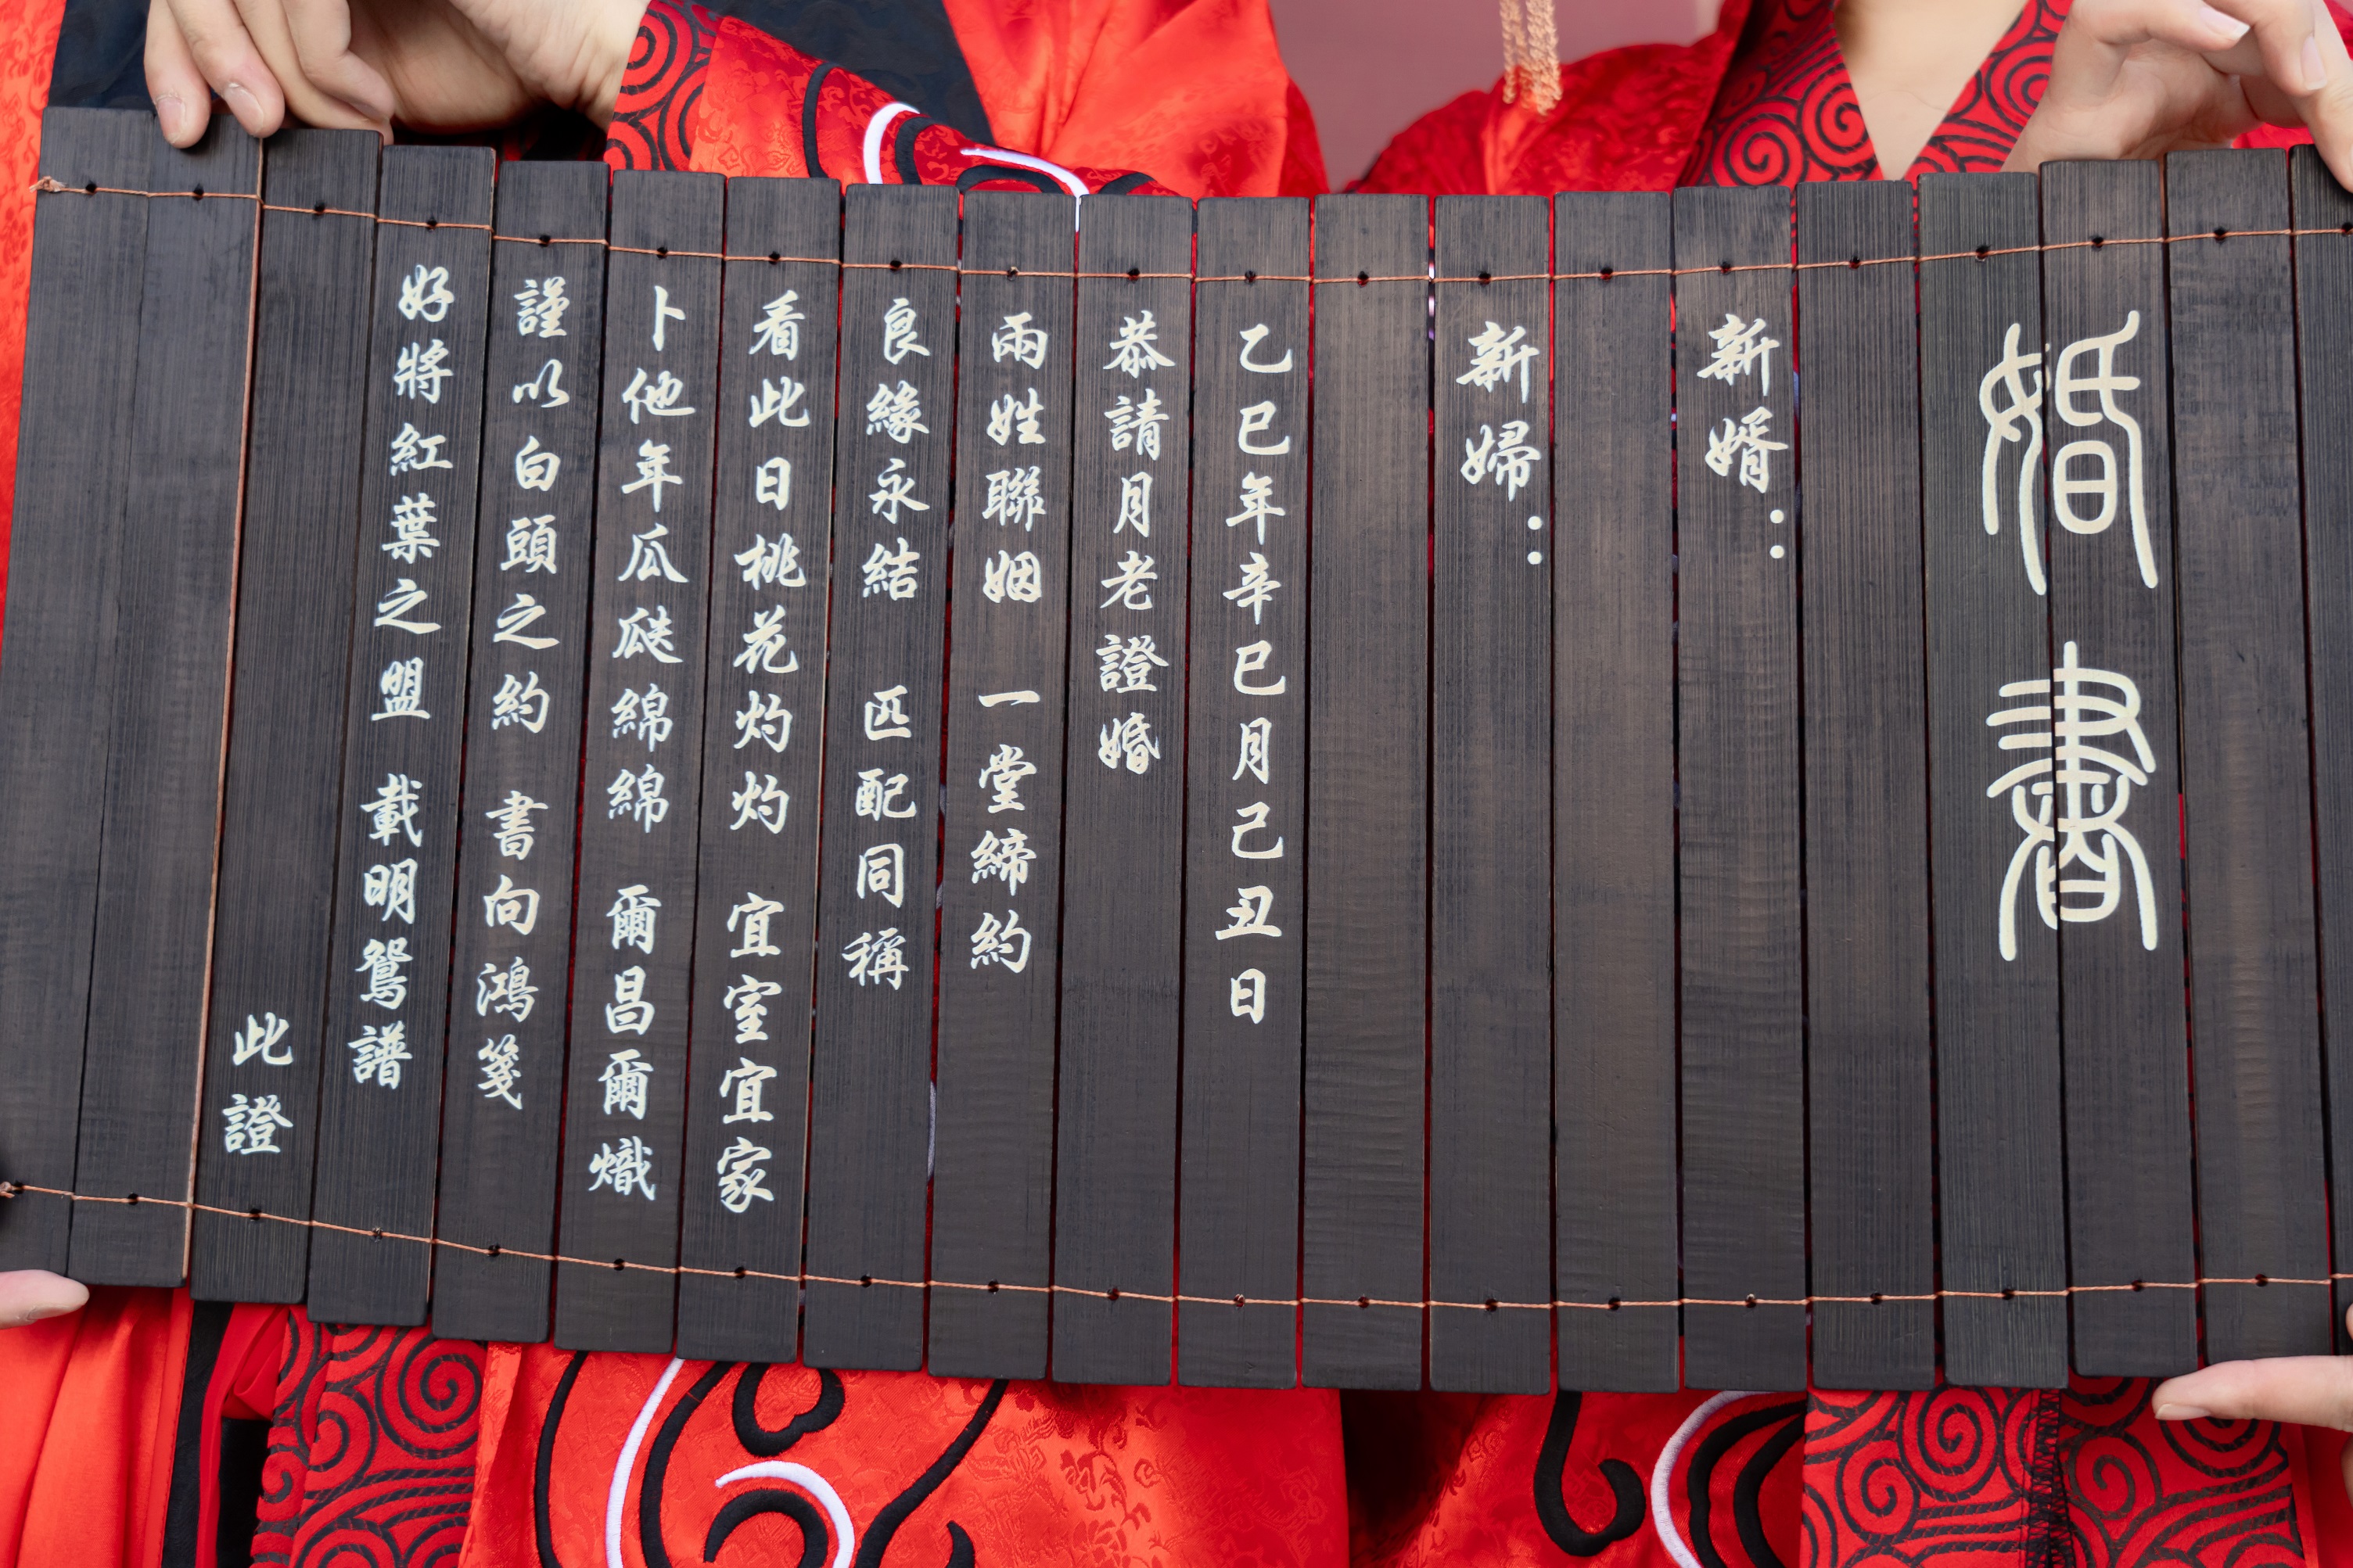 婚書
新婿：
新婦：
乙巳年辛巳月己丑日
恭請月老證婚
兩姓聯姻 一堂締約
良緣永結 匹配同稱
看此日桃花灼灼 宜室宜家
卜他年瓜瓞綿綿 爾昌爾熾
謹以白頭之約 書向鴻箋
好將紅葉之盟 載明鴛譜
此證